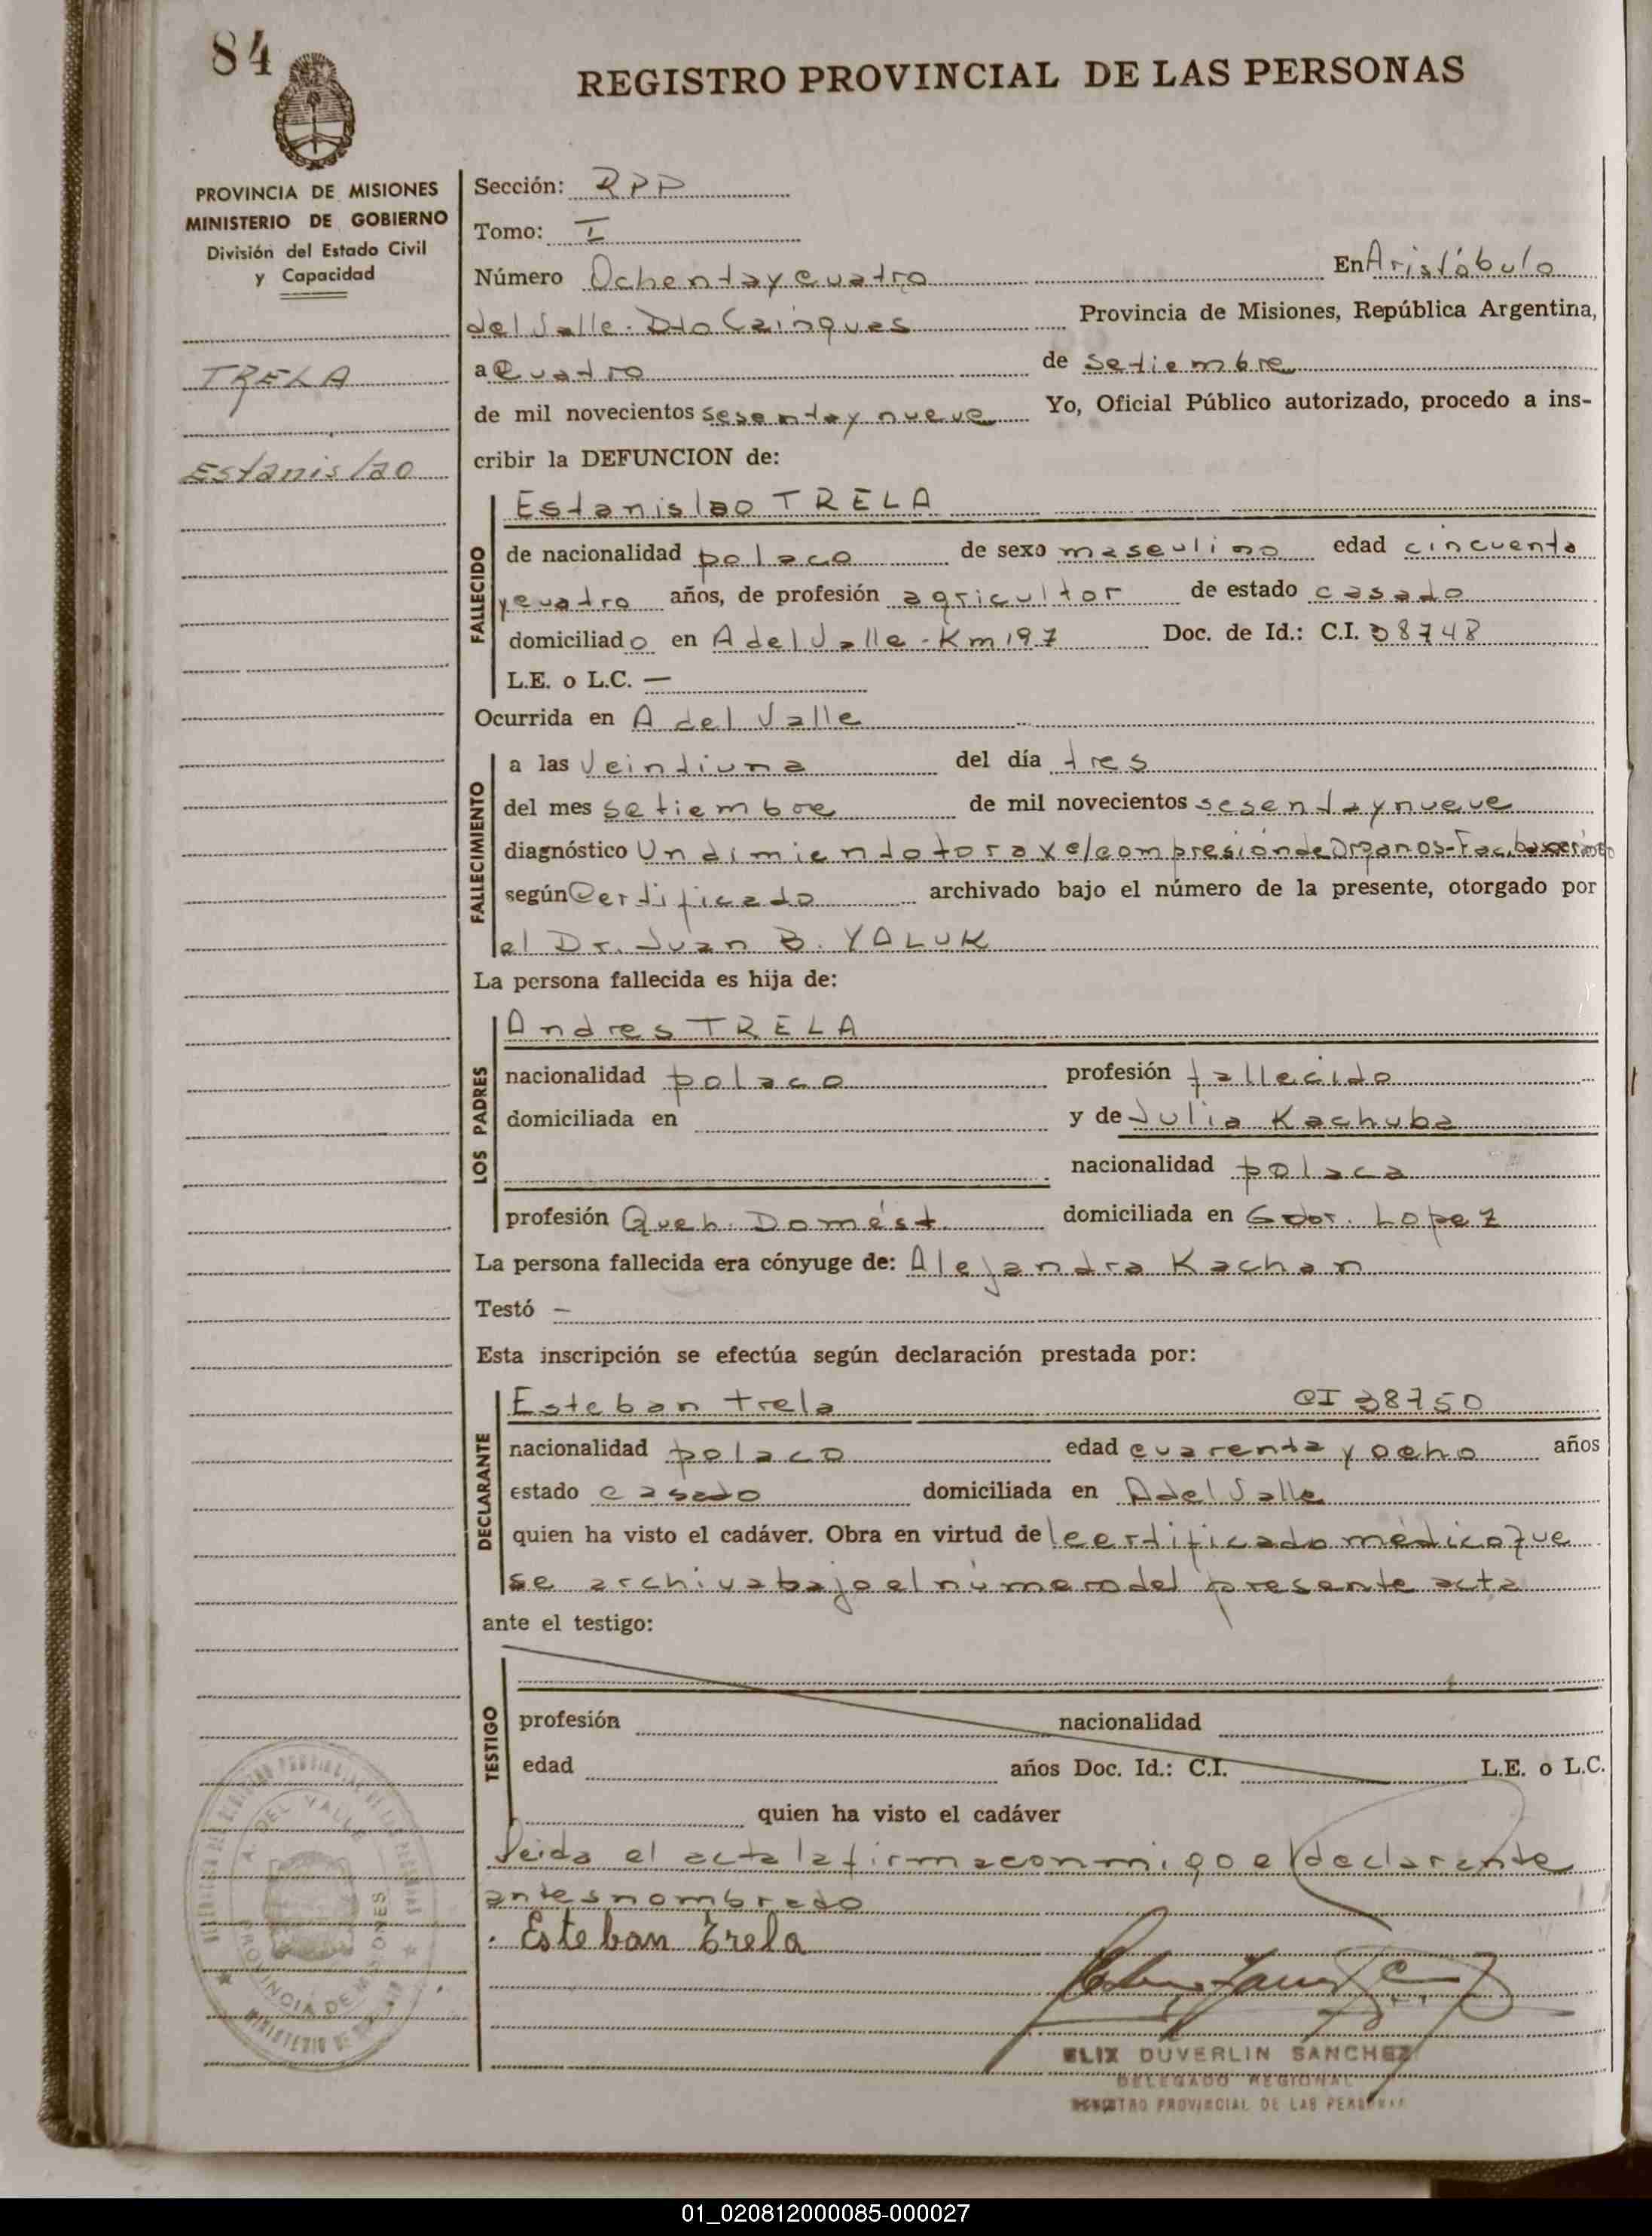 84
REGISTRO PROVINCIAL DE LAS PERSONAS
PROVINCIA DE MISIONES
MINISTERIO DE GOBIERNO
División del Estado Civil
y Capacidad
TRELA
Estanislao
Sección: RPP
Tomo: I
Número Ochenta y cuatro En Aristóbulo
del Valle - Dto Cainguas Provincia de Misiones, República Argentina,
a Cuatro de setiembre
de mil novecientos sesenta y nueve Yo, Oficial Público autorizado, procedo a ins-
cribir la DEFUNCION de:
FALLECIDO
Estanislao TRELA
de nacionalidad polaco de sexo masculino edad cincuenta
y cuatro años, de profesión agricultor de estado casado
domiciliado en A del Valle - Km 197 Doc. de Id.: C.I. 38748
L.E. o L.C. —
Ocurrida en A del Valle
FALLECIMIENTO
a las Veintiuna del día tres
del mes setiembre de mil novecientos sesenta y nueve
diagnóstico Undimiento torax c/compresión de Organos-
según Certificado archivado bajo el número de la presente, otorgado por
el Dr. Juan B. YALUK
La persona fallecida es hija de:
LOS PADRES
Andres TRELA
nacionalidad polaco profesión fallecido
domiciliada en y de Julia Kachuba
nacionalidad polaca
profesión Queh. Domést. domiciliada en Gdor. Lopez
La persona fallecida era cónyuge de: Alejandra Kachan
Testó —
Esta inscripción se efectúa según declaración prestada por:
DECLARANTE
Esteban trela CI 38750
nacionalidad polaco edad cuarenta y ocho años
estado casado domiciliada en A del Valle
quien ha visto el cadáver. Obra en virtud de l certificado médico que
se archiva bajo el número del presente acta
ante el testigo:
TESTIGO
profesión nacionalidad
edad años Doc. Id.: C.I. L.E. o L.C.
quien ha visto el cadáver
Leida el acta la firma conmigo el declarante
antes nombrado
Esteban Trela
A. DEL VALLE
PROVINCIA DE MISIONES
ELIX DUVERLIN SANCHEZ
DELEGADO REGIONAL
REGISTRO PROVINCIAL DE LAS PERSONAS
01_020812000085-000027